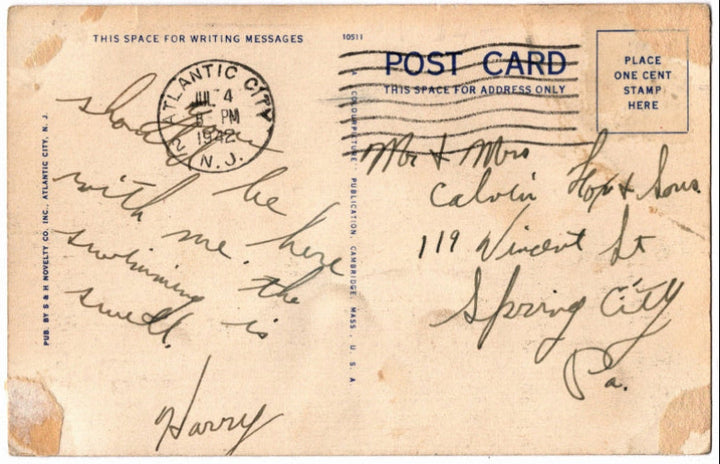 THIS SPACE FOR WRITING MESSAGES
10511
POST CARD
THIS SPACE FOR ADDRESS ONLY
PLACE
ONE CENT
STAMP
HERE
ATLANTIC CITY
2
JUL 4
8 PM
1942
N. J.
should
be here
with me. the
swimming is
swell.
Harry
Mr & Mrs
Calvin & Sons
119 Vincent St
Spring City
Pa.
PUB. BY S & H NOVELTY CO. INC., ATLANTIC CITY, N. J.
A COLOURPICTURE PUBLICATION, CAMBRIDGE, MASS., U. S. A.